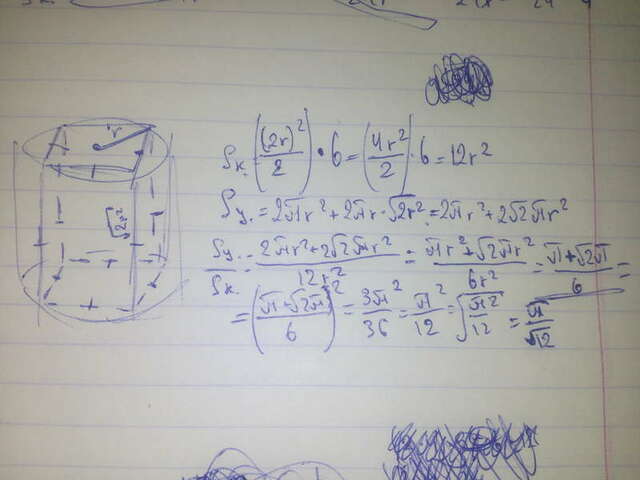 r
√2r²
Sк. ((2r)²/2) • 6 = (4r²/2) · 6 = 12r²
Sу. = 2πr² + 2πr · √2r² = 2πr² + 2√2πr²
Sу./Sк. = (2πr² + 2√2πr²)/12r² = (πr² + √2πr²)/6r² = (π + √2π)/6 =
= ((π + √2π)/6)² = 3π²/36 = π²/12 = √(π²/12) = π/√12